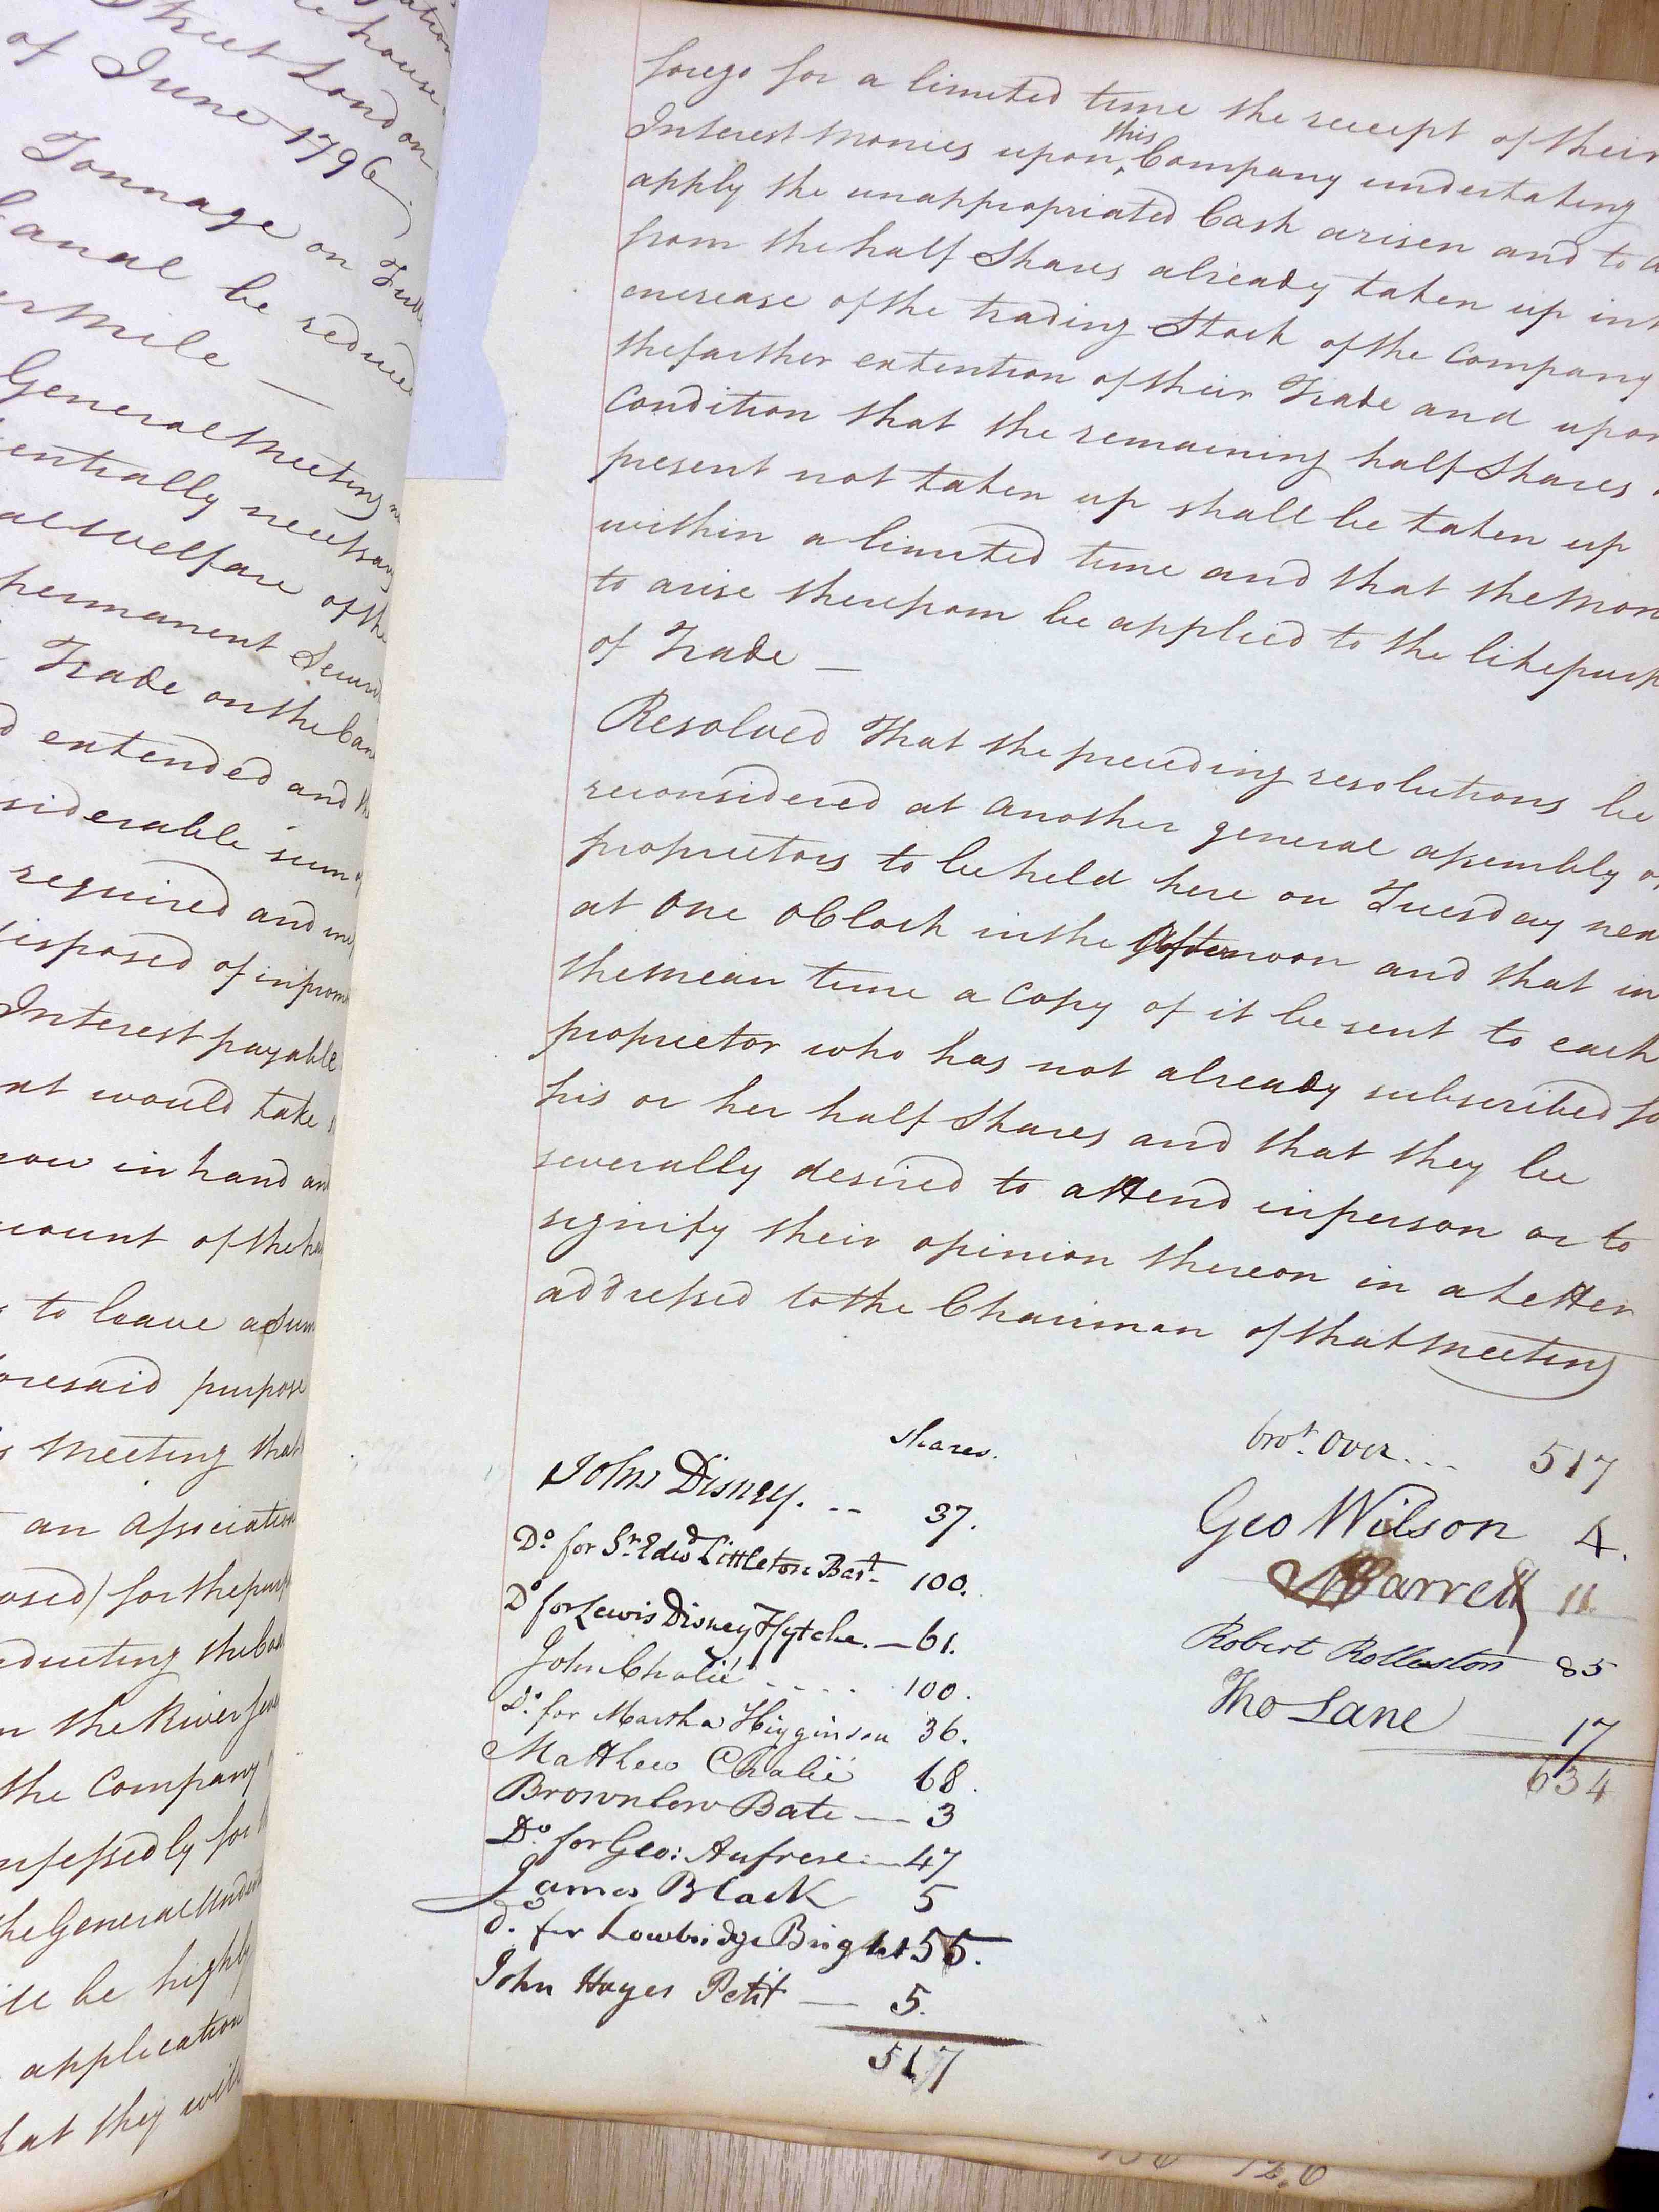 of June 1796
Tonnage on
Canal be reduced
mile —
General Meeting
necessary
welfare of the
permanent
Trade on the
extended and
sum
required and
disposed of
Interest payable
would take
in hand and
of the
to leave a sum
purpose
Meeting that
an Association
for the
the
the River
the Company
for
the General
be highly
application
that they will
forego for a limited time the receipt of their
Interest monies upon this Company undertaking
apply the unappropriated Cash arisen and to a
from the half Shares already taken up int
encrease of the trading Stock of the Company
the farther extention of their Trade and upon
Condition that the remaining half Shares
present not taken up shall be taken up
within a limited time and that the Mon
to arise therefrom be applied to the like purp
of Trade —
Resolved That the preceding resolutions be
reconsidered at another general assembly of
proprietors to be held here on Tuesday nex
at one oClock in the Afternoon and that in
the mean time a Copy of it be sent to each
proprietor who has not already subscribed fo
his or her half Shares and that they be
severally desired to attend in person or to
signify their opinion thereon in a Letter
addressed to the Chairman of that Meeting
Shares.
John Disney. -- 37.
Do for Sr. Edwd Littleton Bart. 100.
Do for Lewis Disney Ffytche. — 61.
John Chalié .... 100.
Do. for Martha Higginson 36.
Matthew Chalié 68.
Brownlow Bate — 3
Do. for Geo: Aufrere — 47
James Black 5
do. for Lowbridge Bright 55.
John Hayes Petit — 5.
517
brot. over ... 517
Geo Wilson 4.
Barrett 11
Robert Rolleston 85
Tho Lane — 17
634